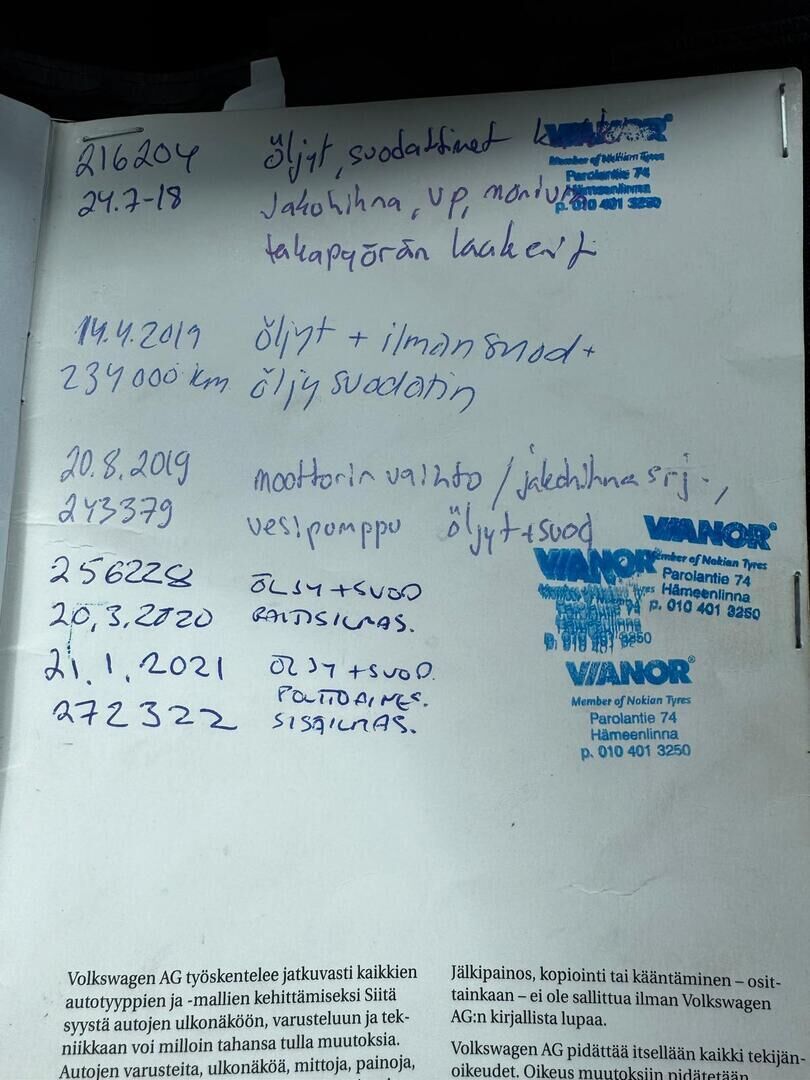 216204 öljyt, suodattimet
24.7-18 jakohihna, vp, moniura
takapyörän laakerit
VIANOR
Member of Nokian Tyres
Parolantie 74
Hämeenlinna
p. 010 401 3250
14.4.2019 öljyt + ilman suod +
234000 km öljy suodatin
20.8.2019 moottorin vaihto / jakohihna srj.,
243379 vesipomppu öljyt + suod
256228 ÖLJY + SUOD
20.3.2020 RAITISILMAS.
21.1.2021 ÖLJY + SUOD.
POLTTOAINES.
272322 SISÄILMAS.
VIANOR
Member of Nokian Tyres
Parolantie 74
Hämeenlinna
p. 010 401 3250
VIANOR
VIANOR
Member of Nokian Tyres
Parolantie 74
Hämeenlinna
p. 010 401 3250
Volkswagen AG työskentelee jatkuvasti kaikkien
autotyyppien ja -mallien kehittämiseksi Siitä
syystä autojen ulkonäköön, varusteluun ja tek-
niikkaan voi milloin tahansa tulla muutoksia.
Autojen varusteita, ulkonäköä, mittoja, painoja,
Jälkipainos, kopiointi tai kääntäminen – osit-
tainkaan – ei ole sallittua ilman Volkswagen
AG:n kirjallista lupaa.
Volkswagen AG pidättää itsellään kaikki tekijän-
oikeudet. Oikeus muutoksiin pidätetään